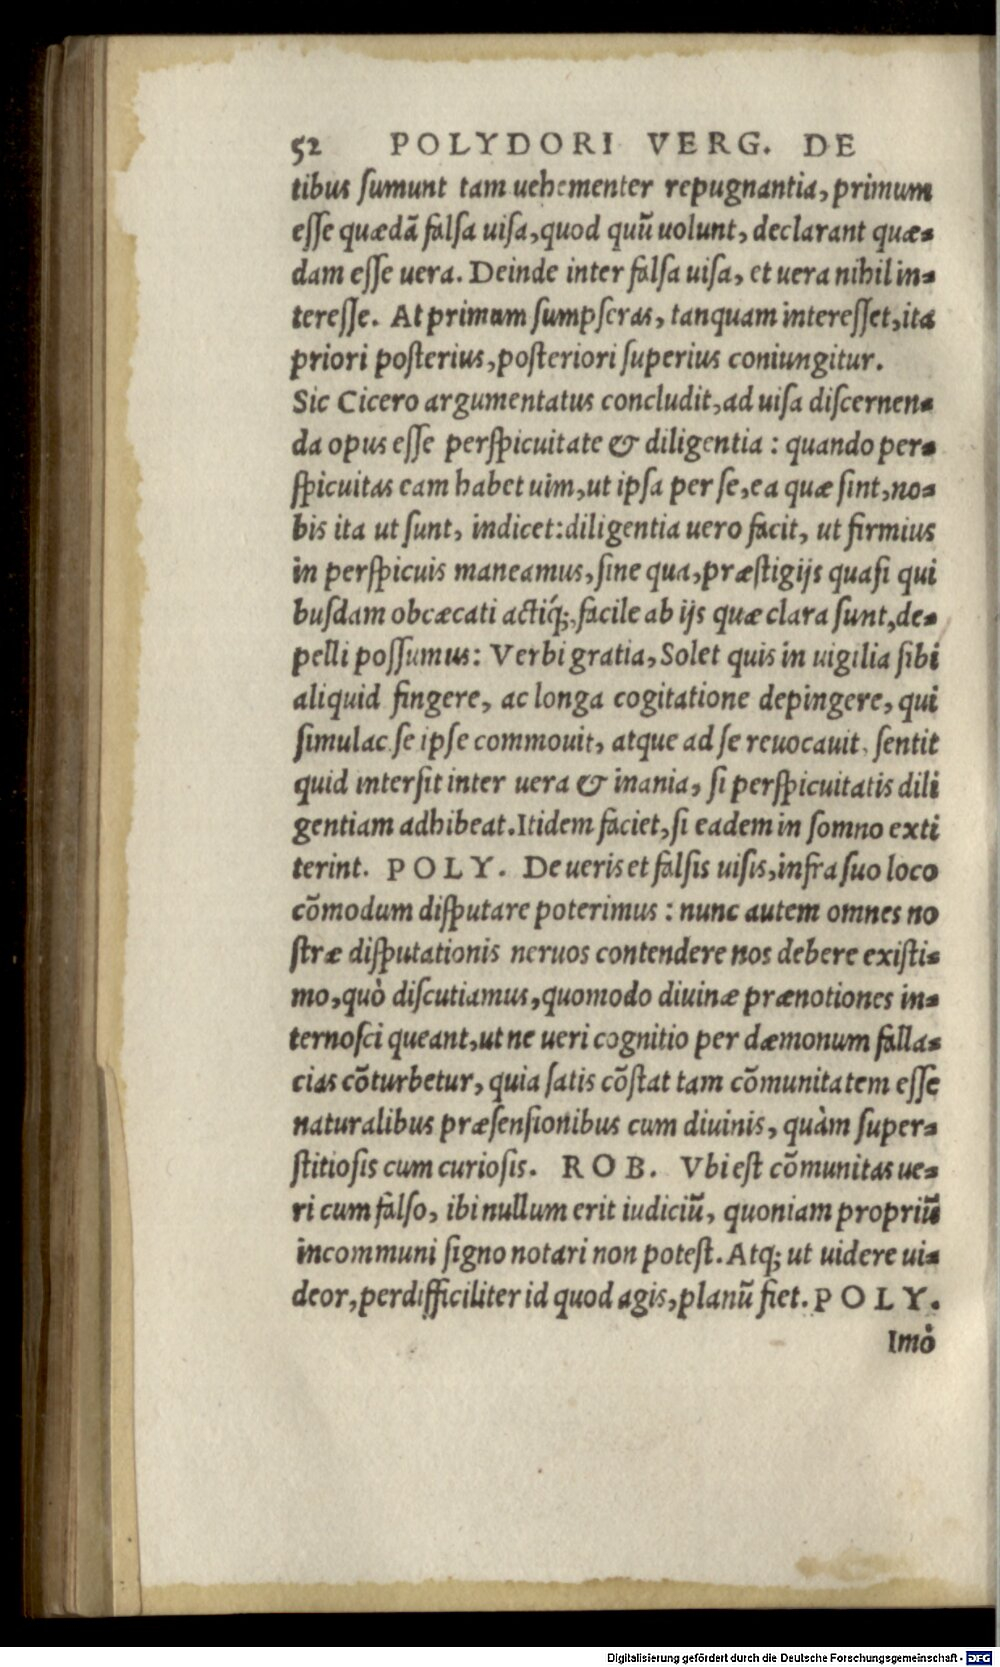 52 POLYDORI VERG. DE
tibus ſumunt tam uehementer repugnantia, primum
eſſe quædã falſa uiſa, quod quũ uolunt, declarant quæ-
dam eſſe uera. Deinde inter falſa uiſa, et uera nihil in-
tereſſe. At primum ſumpſeras, tanquam intereſſet, ita
priori poſterius, poſteriori ſuperius coniungitur.
Sic Cicero argumentatus concludit, ad uiſa diſcernen-
da opus eſſe perſpicuitate & diligentia : quando per-
ſpicuitas eam habet uim, ut ipſa per ſe, ea quæ ſint, no-
bis ita ut ſunt, indicet: diligentia uero facit, ut firmius
in perſpicuis maneamus, ſine qua, præſtigijs quaſi qui
buſdam obcæcati actiq́;, facile ab ijs quæ clara ſunt, de-
pelli poſſumus: Verbi gratia, Solet quis in uigilia ſibi
aliquid fingere, ac longa cogitatione depingere, qui
ſimulac ſe ipſe commouit, atque ad ſe reuocauit, ſentit
quid interſit inter uera & inania, ſi perſpicuitatis dili
gentiam adhibeat. Itidem faciet, ſi eadem in ſomno exti
terint. POLY. De ueris et falſis uiſis, infra ſuo loco
cõmodum diſputare poterimus : nunc autem omnes no
ſtræ diſputationis neruos contendere nos debere exiſti-
mo, quò diſcutiamus, quomodo diuinæ prænotiones in-
ternoſci queant, ut ne ueri cognitio per dæmonum falla-
cias cõturbetur, quia ſatis cõſtat tam cõmunitatem eſſe
naturalibus præſenſionibus cum diuinis, quàm ſuper-
ſtitioſis cum curioſis. ROB. Vbi eſt cõmunitas ue-
ri cum falſo, ibi nullum erit iudiciũ, quoniam propriũ
in communi ſigno notari non poteſt. Atq; ut uidere ui-
deor, perdifficiliter id quod agis, planũ fiet. POLY.
Imò
Digitalisierung gefördert durch die Deutsche Forschungsgemeinschaft - DFG